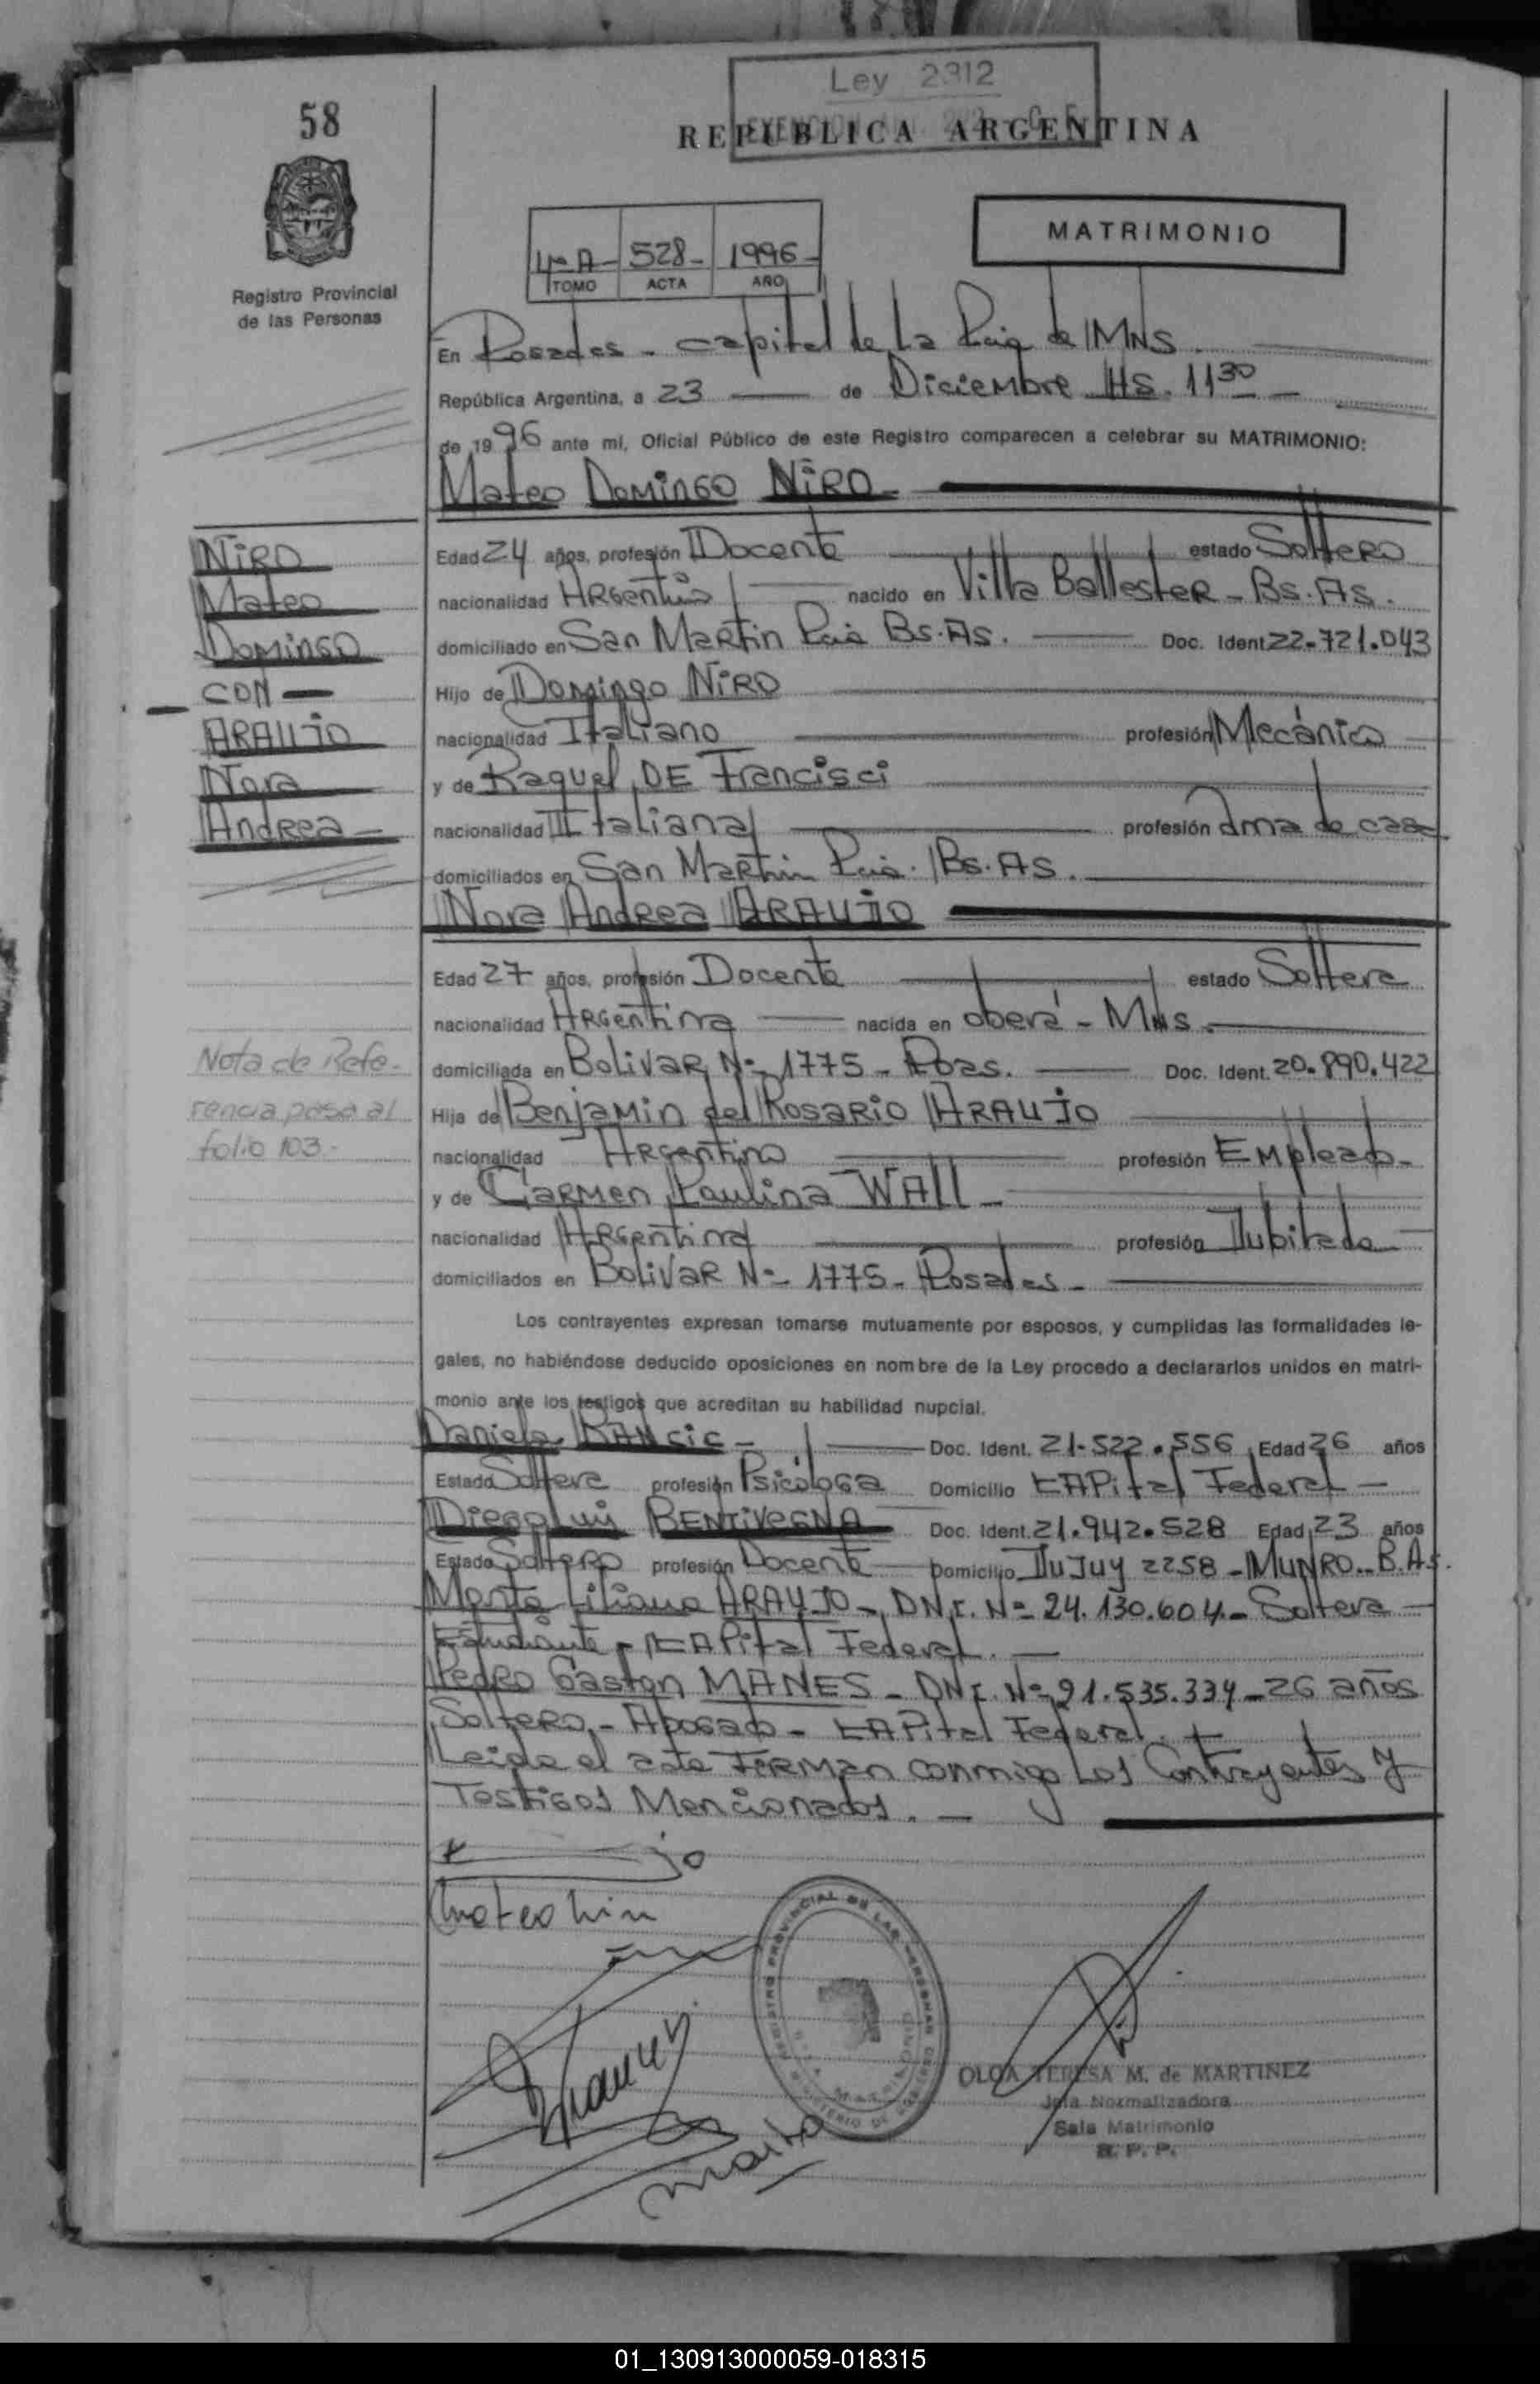 Ley 2312
58
REPUBLICA ARGENTINA
MATRIMONIO
4º A - 528 - 1996 -
TOMO ACTA AÑO
Registro Provincial
de las Personas
En Posadas - capital de La Pcia de MNS.
República Argentina, a 23 de Diciembre HS. 11 30 -
de 1996 ante mí, Oficial Público de este Registro comparecen a celebrar su MATRIMONIO:
Mateo Domingo NIRO -
NIRO
Mateo
Domingo
CON -
ARAUJO
Nora
Andrea -
Edad 24 años, profesión Docente estado Soltero
nacionalidad Argentino nacido en Villa Ballester - Bs. As.
domiciliado en San Martin Pcia Bs. As. Doc. Ident 22-721.043
Hijo de Domingo NIRO
nacionalidad Italiano profesión Mecánico
y de Raquel DE Francisci
nacionalidad Italiana profesión Ama de casa
domiciliados en San Martin Pcia. Bs. AS.
Nora Andrea ARAUJO
Edad 27 años, profesión Docente estado Soltera
nacionalidad Argentina nacida en oberá - Mns.
domiciliada en Bolivar Nº 1775 - Pdas. Doc. Ident. 20.890.422
Hija de Benjamin del Rosario ARAUJO
nacionalidad Argentino profesión Empleado -
y de Carmen Paulina WAll -
nacionalidad Argentina profesión Jubilada
domiciliados en Bolivar Nº 1775 - Posadas -
Nota de Refe-
rencia pasa al
folio 103.-
Los contrayentes expresan tomarse mutuamente por esposos, y cumplidas las formalidades le-
gales, no habiéndose deducido oposiciones en nombre de la Ley procedo a declararlos unidos en matri-
monio ante los testigos que acreditan su habilidad nupcial.
Daniela BANcic - Doc. Ident. 21-522.556 Edad 26 años
Estado Soltera profesión Psicóloga Domicilio CAPital Federal -
Diego Luis BENTIVEGNA Doc. Ident. 21.942.528 Edad 23 años
Estado Soltero profesión Docente Domicilio JuJuy 2258 - MUNRO - B. As.
Marta Liliana ARAUJO - DN.I. Nº 24.130.604 - Soltera -
Estudiante - CAPital Federal. -
Pedro Gaston MANES - DNI. Nº 21.535.334 - 26 años
Soltero - Abogado - CAPital Federal. -
Leida el acta Firman conmigo Los Contrayentes y
Testigos Mencionados. -
Mateo Niro
Marta
REGISTRO PROVINCIAL DE LAS PERSONAS
OLGA TERESA M. de MARTINEZ
Jefa Normalizadora
Sala Matrimonio
R. P. P.
01_130913000059-018315